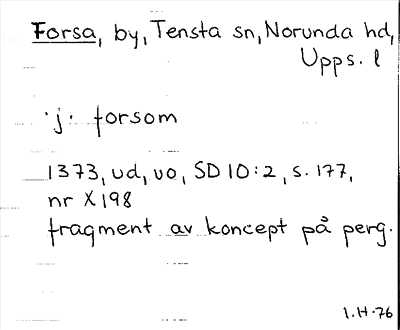 Forsa, by, Tensta sn, Norunda hd,
Upps. l
·j· forsom
1373, ud, uo, SD 10:2, s. 177,
nr X 198
fragment av koncept på perg.
I.H-76